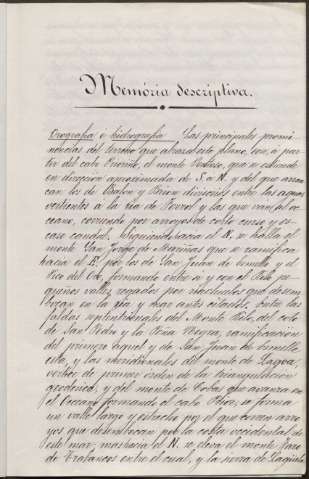 Memória descriptiva.
Orografia e hidrografia Las principales promi
nencias del terreno que abarca este plano, son, á par
tir del cabo Prioriño, el monte Ventoso, que se estiende
en dirección aproximada de S. á N. y del que arran
can los de Balón y Brion divisorios entre las aguas
vertientes á la ria de Ferrol y las que van al oc
ceano, corriendo por arroyos de corto curso y es
caso caudal. Siguiendo hacia el N. se halla el
monte San Jorge de Mariñas que se ramifica
hacia el E. por los de San Juan de
formando entre si y con el pe
queños valles regados por riachuelos que desem
bocan en la ria y mar antes citados. Entre las
faldas septentrionales del Monte del
de San Pedro y la Peña Negra, ramificacion
del primero aquel y de San Juan de
esta, y las meridionales del monte de Lagoa,
vertice de primer órden de la triangulacion
geodésica, y del monte de Cobas que avanza en
el Occeano formando el cabo se forma
un valle largo y estrecho por el que corren arro
yos que desembocan por la costa occidental de
este mar, mas hacia el N. se eleva el monte
de entre el cual, y la sierra de